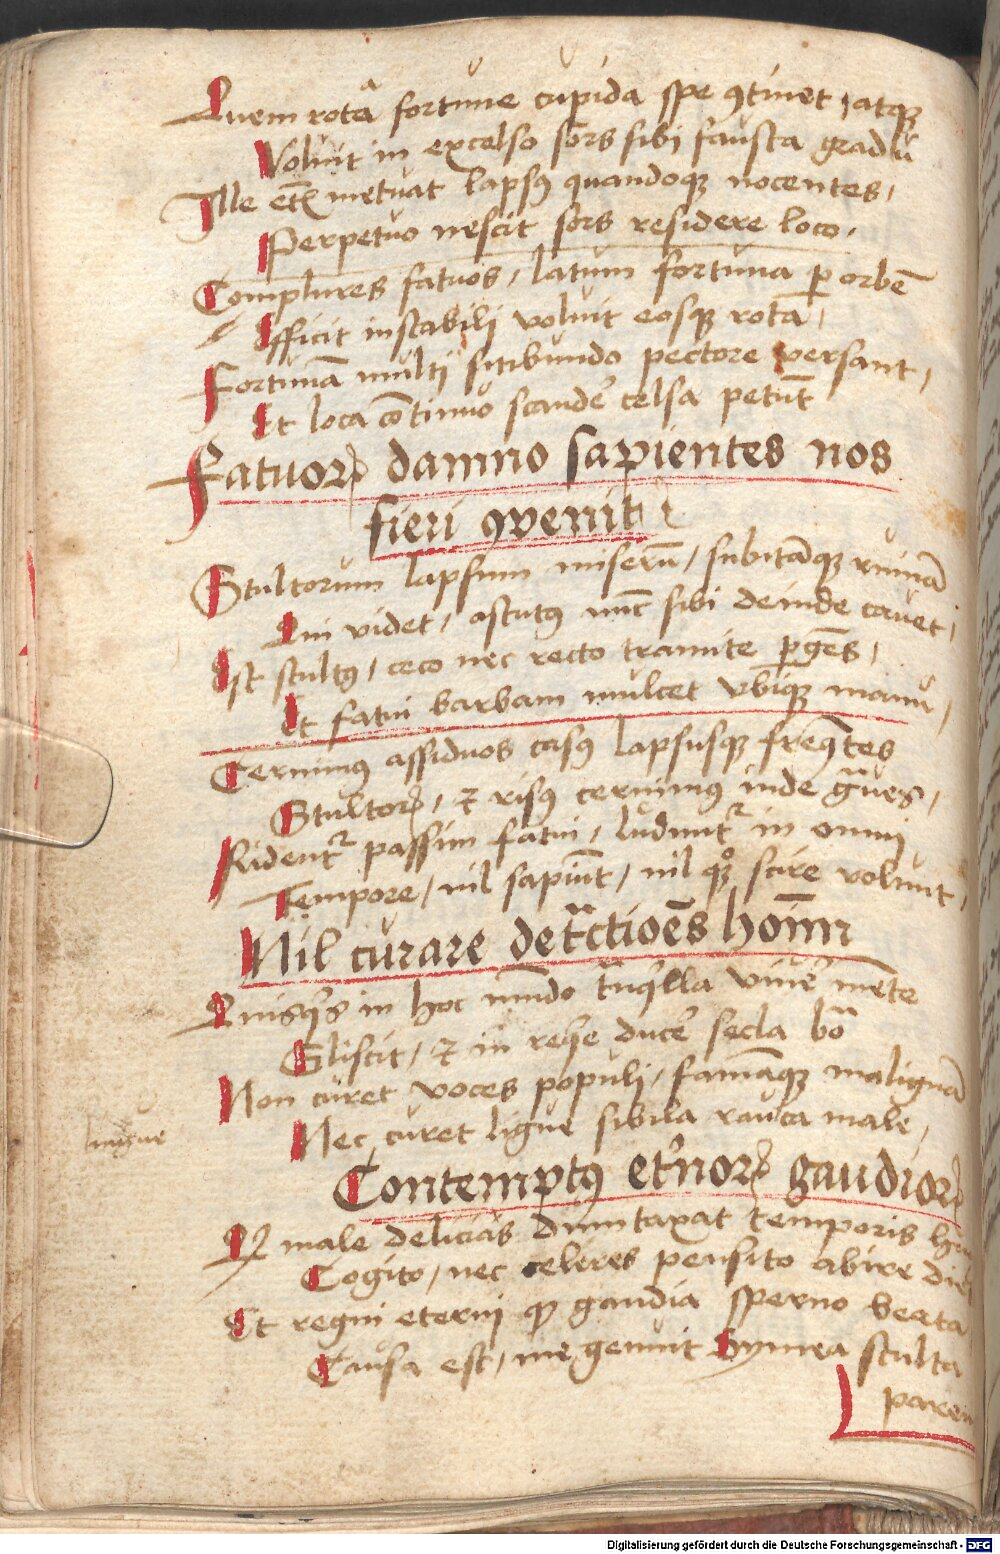 Quem rotā fortune cupida spe ꝯtinet, atqꝫ
Voluit in excelso sors sibi fausta gradū
Ille etꝫ metuat lapsꝰ quandoqꝫ nocentes,
Perpetuo nescit sors residere loco.
Complures fatuos, latum fortuna ꝑ orbē
Efficit instabili voluit eosqꝫ rota,
Fortunā multi sitibundo pectore versant,
Et loca cōtinuo scandeʾ celsa petūt
Fatuorꝝ damno sapientes nos
fieri ꝯvenit
Stultorum lapsum miserū, subitāqꝫ ruinā
Qui videt, astutꝰ nūc sibi deinde cavet,
Est stultꝰ, ceco nec recto tramite ꝑgēs,
Et fatui barbam mulcet vbiqꝫ manu,
Cernimꝰ assiduos casꝰ lapsusqꝫ freqn̄tes
Stultorꝝ, ⁊ risꝰ cernimꝰ inde gͣues,
Rident᷑ passim fatui, ludunt᷑ in omni
Tempore, nil sapiūt, nil qꝫ scire volunt,
Nil curare detͣctiōes hoīm
Quisqꝫ in hoc mūdo tn̄qͥlla viueʾ mēte
Gliscit, ⁊ in reqͥe duceʾ secla bōa
Non curet voces populi, famāqꝫ malignā
Nec curet ligue sibila rauca male,
lingue
Contemptꝰ etʾnorꝝ gaudiorꝝ
Qꝫ male delicias dumtaxat temporis
Cogito, nec celeres pensito abire dies
Et regni eterni qꝫ gaudia sperno beata
Causa est, me genuit Gymea stulta
paren